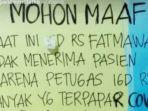 MOHON MAAF
AAT INI IGD RS FATMAWA
DAK MENERIMA PASIEN
ARENA PETUGAS IGD RS
ANYAK YG TERPAPAR COV